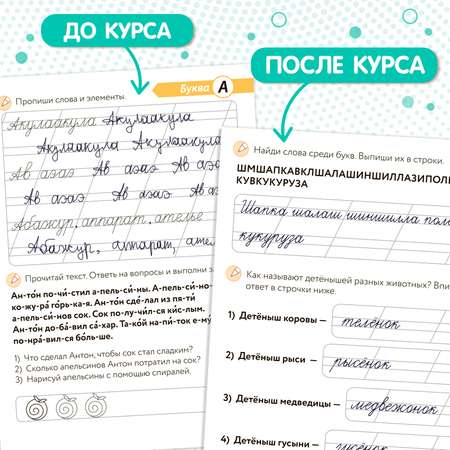 ДО КУРСА
ПОСЛЕ КУРСА
Буква А
Пропиши слова и элементы.
Акулаакула Акулаакула
Акулаакула Акулаакула
Ав агаг Ав агаг
Ав агаг Ав агаг Ав агаг
Абажур, аппарат, ателье
Абажур, аппарат, ател
Прочитай текст. Ответь на вопросы и выполни за
Ан-то́н по-чи́-стил а-пель-си́-ны. А-пель-си́-но-
ко-жу-ра́ го́рь-ка-я. Ан-то́н сде́-лал из пя-ти́
а-пель-си́-нов сок. Сок по-лу-чи́л-ся ки́с-лым.
Ан-то́н до-ба́-вил са́-хар. Та-ко́й на-пи́-ток е-му́
по-нра́-вил-ся бо́ль-ше.
1) Что сделал Антон, чтобы сок стал сладким?
2) Сколько апельсинов Антон потратил на сок?
3) Нарисуй апельсины с помощью спиралей.
Найди слова среди букв. Выпиши их в строки.
ШМШАПКАВКЛШАЛАШИНШИЛЛАЗИПОЛЕ
КУВКУКУРУЗА
Шапка шалаш шиншилла пол
кукуруза
Как называют детёнышей разных животных? Впи
ответ в строчки ниже.
1) Детёныш коровы — телёнок
2) Детёныш рыси — рысёнок
3) Детёныш медведицы — медвежонок
4) Детёныш гусыни — гусёнок